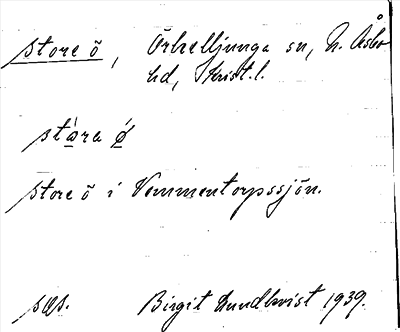 store ö, Örkelljunga sn, N. Åsbo
hd, Krist. l.
stòra ǿ
store ö i Vemmentorpssjön.
sæs. Birgit Lundkvist 1939.